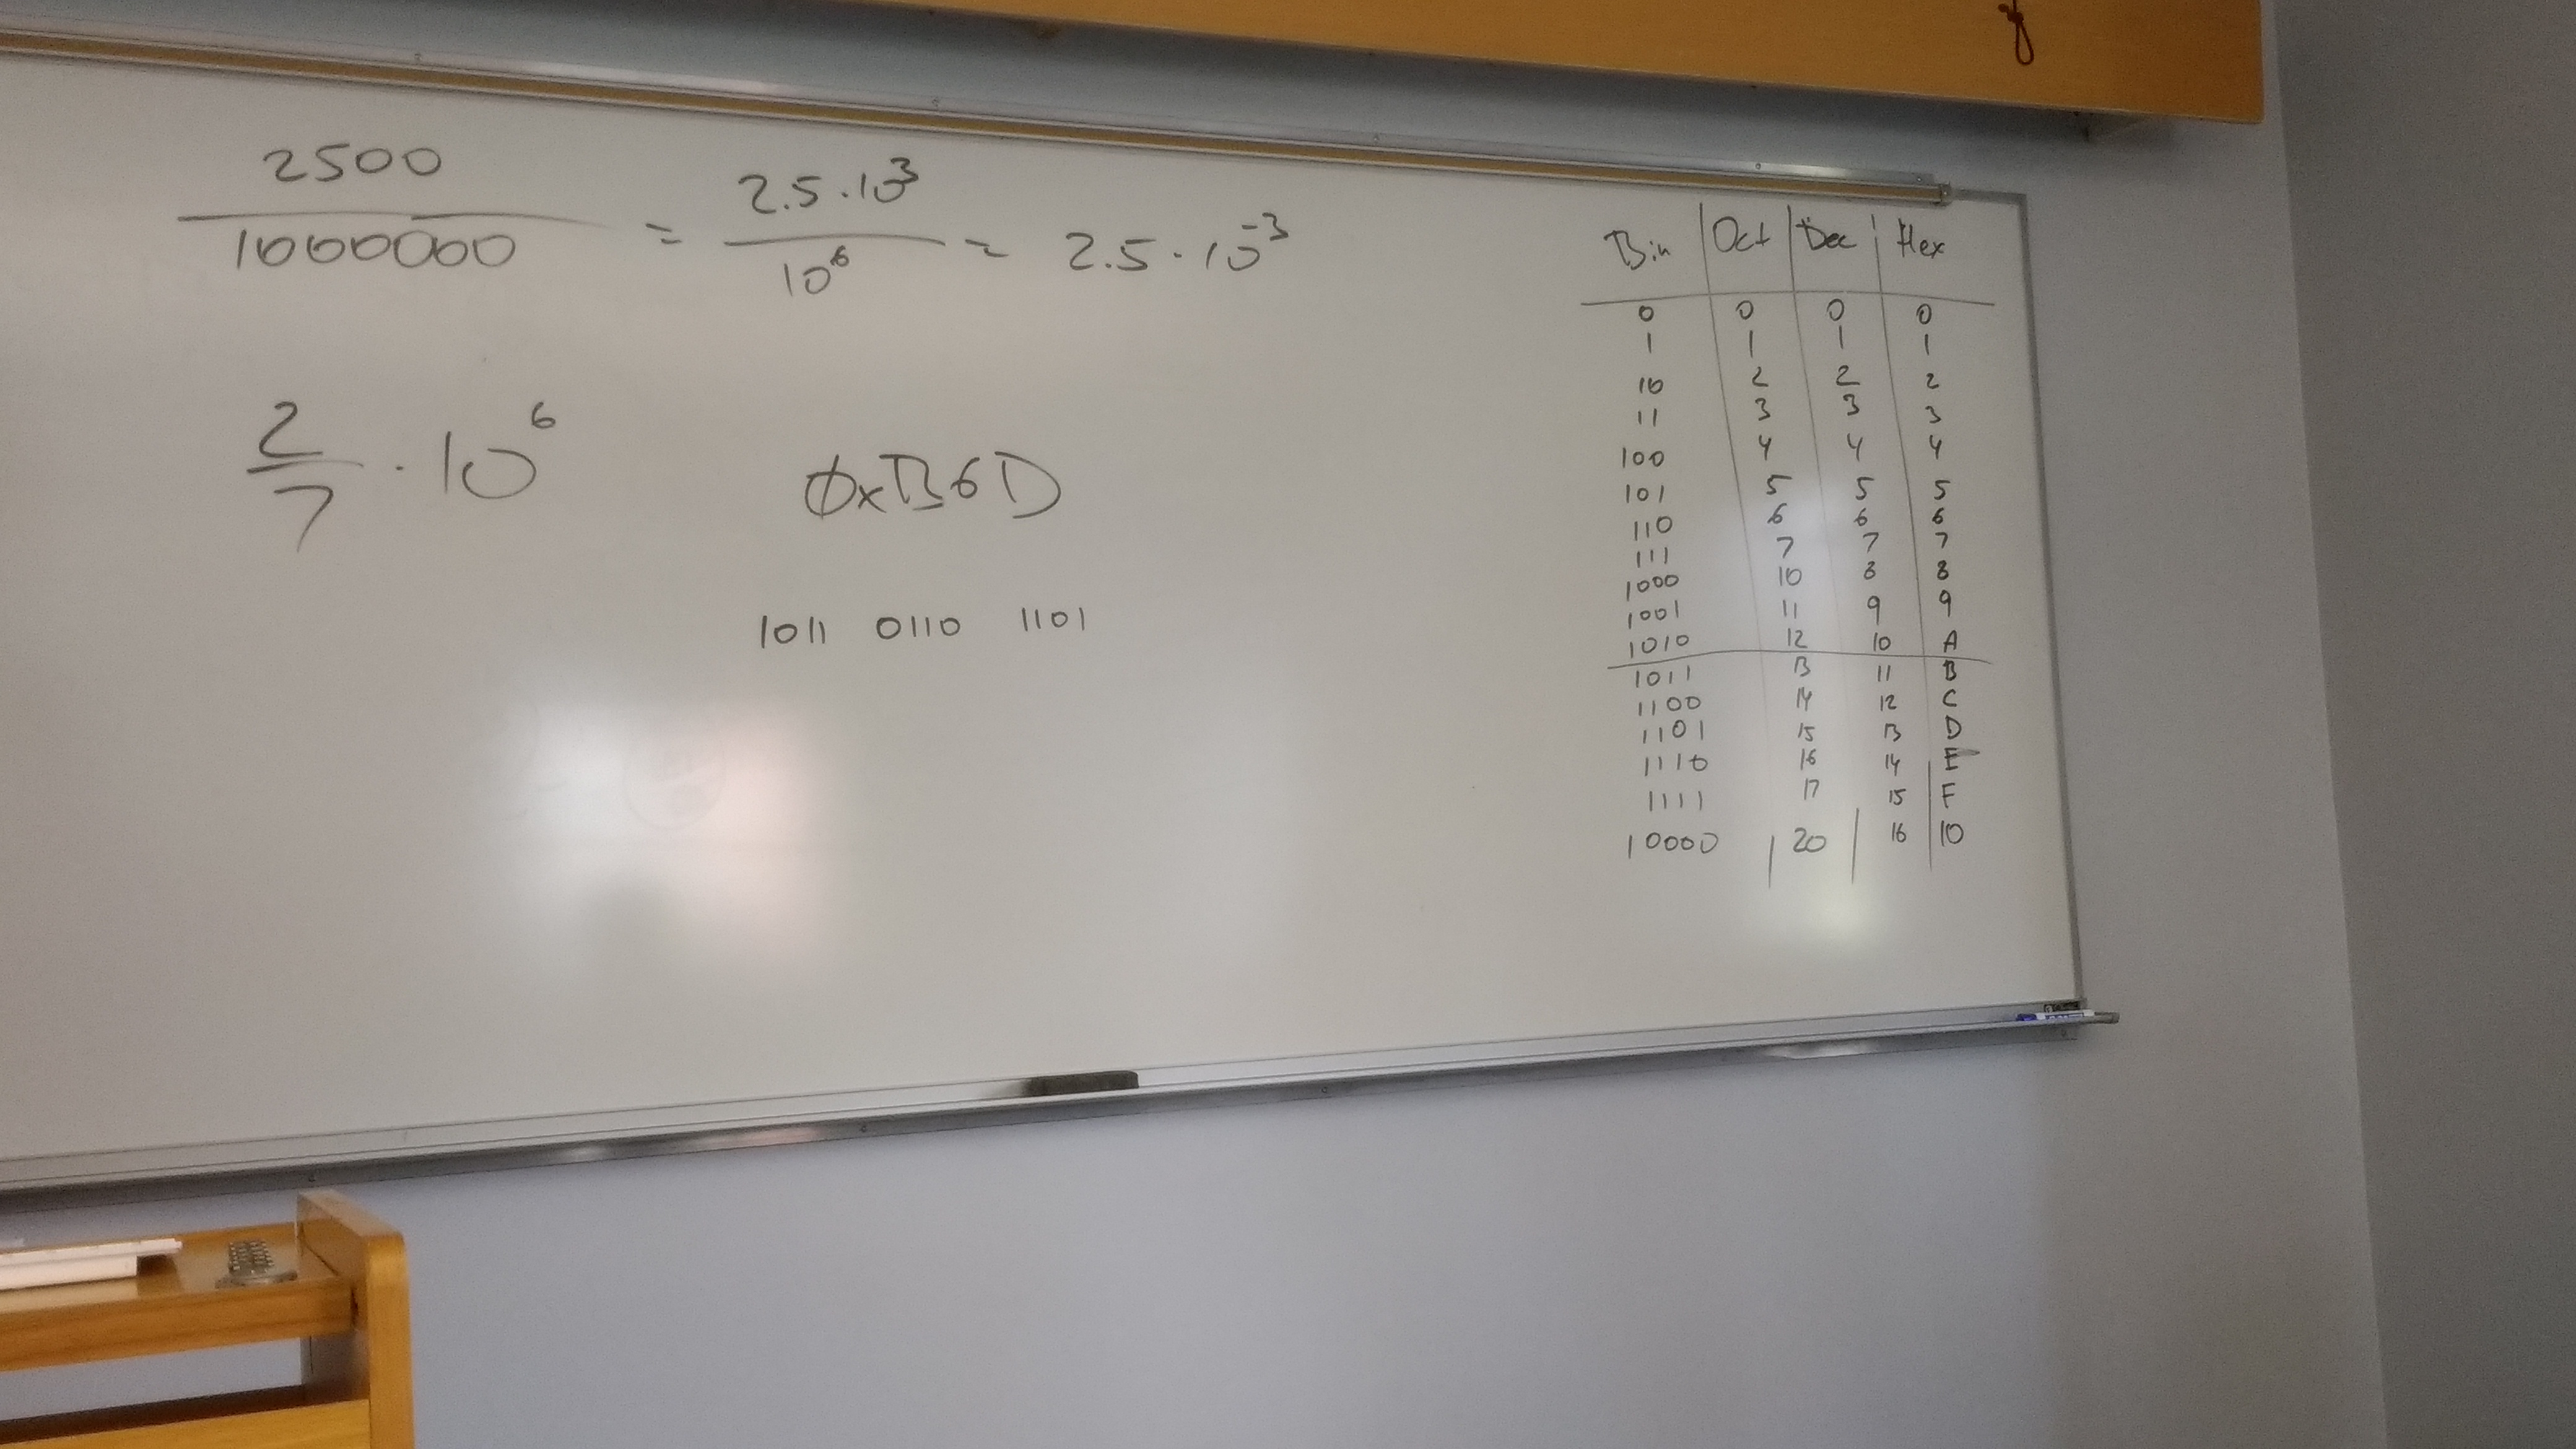 2500 / 1000000 = 2.5 · 10³ / 10⁶ = 2.5 · 10⁻³
2/7 · 10⁶
0xB6D
1011 0110 1101
Bin Oct Dec Hex
0 0 0 0
1 1 1 1
10 2 2 2
11 3 3 3
100 4 4 4
101 5 5 5
110 6 6 6
111 7 7 7
1000 10 8 8
1001 11 9 9
1010 12 10 A
1011 13 11 B
1100 14 12 C
1101 15 13 D
1110 16 14 E
1111 17 15 F
10000 20 16 10